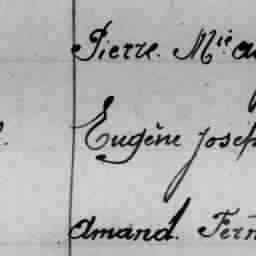 Pierre. Mie
Eugène Josep
Amand. Fern